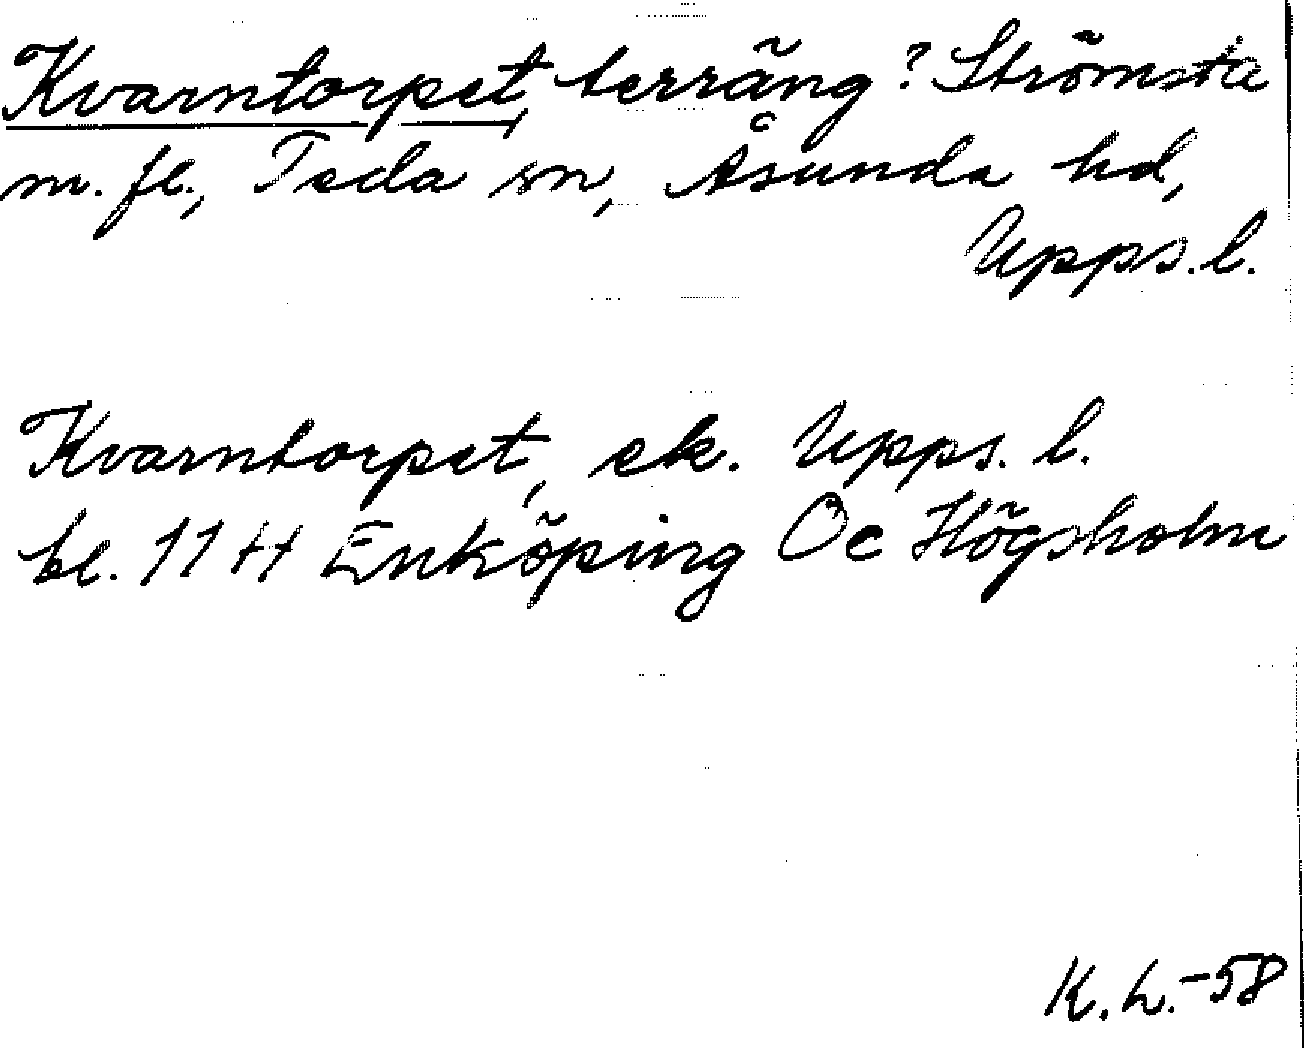 Kvarntorpet, terräng? Strömsta
m.fl., Teda sn, Åsunda hd,
Upps.l.
Kvarntorpet, ek. Upps. l.
bl. 11 H Enköping Oe Högsholm
K.L.-58